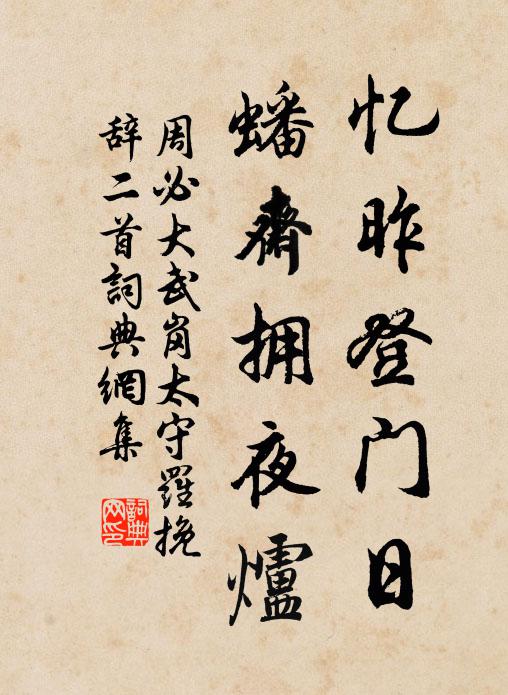 忆昨登门日
蟠斋拥夜爐
周必大武岗太守羅挽
辞二首詞典網集
詞典
网印